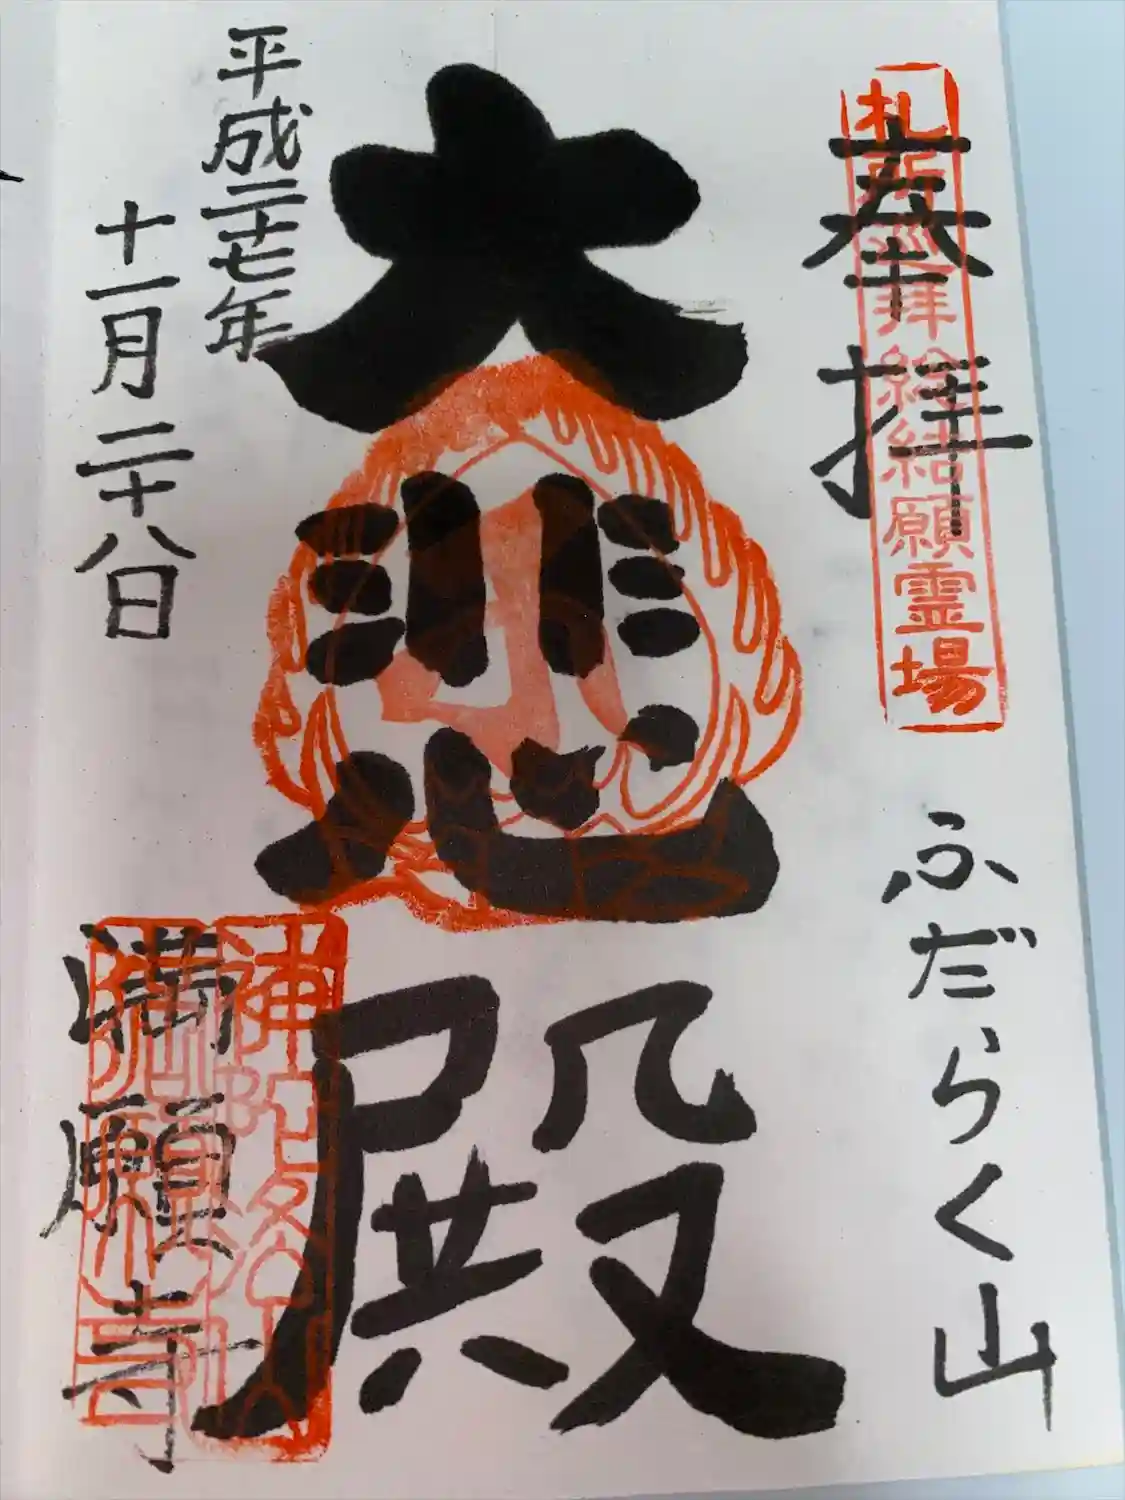 奉拝
札所巡拝総結願霊場
ふだらく山
大悲殿
平成二十七年
十一月二十八日
満願寺
補陀洛山
満願寺